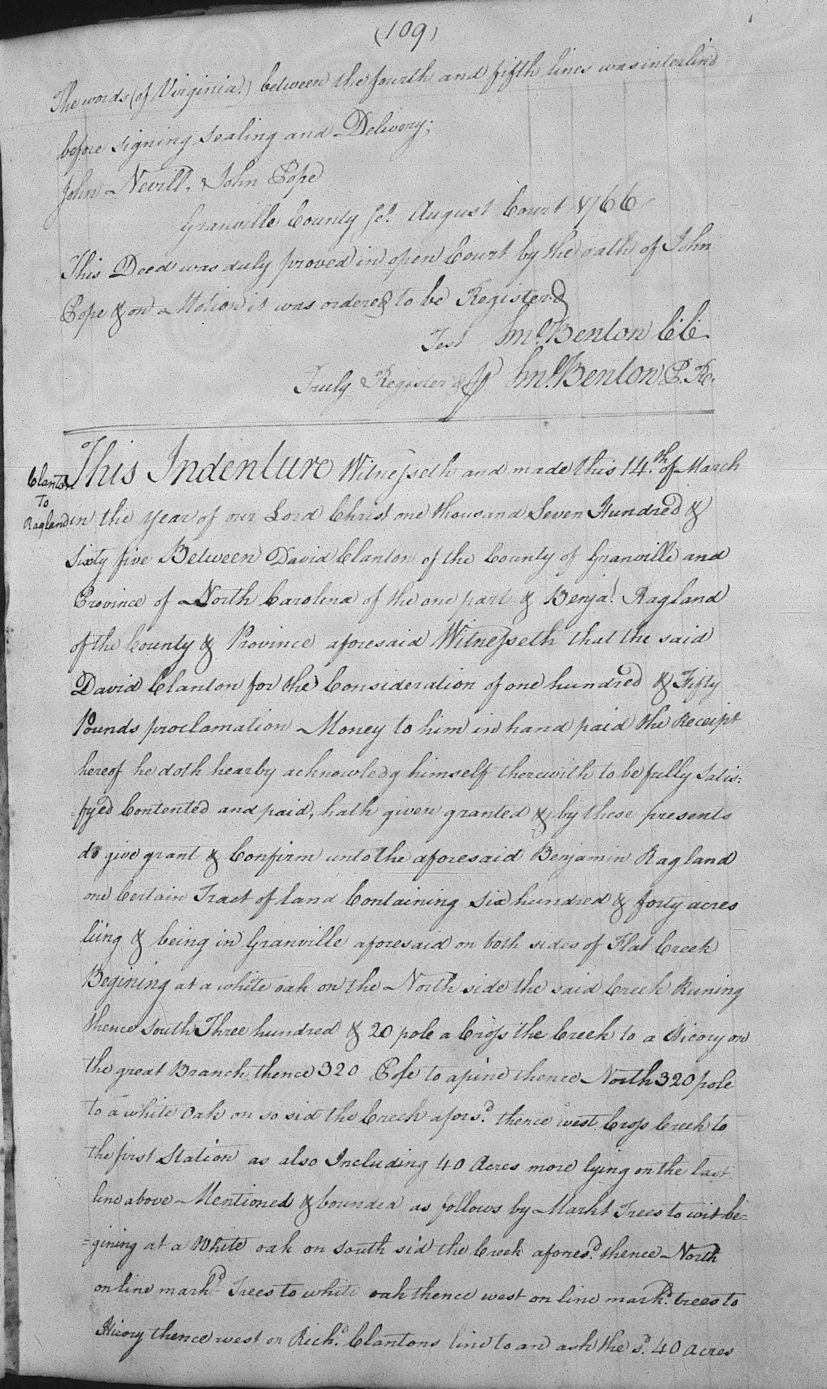 (109)
The words (of Virginia) between the fourth and fifth lines was interlind
before signing Sealing and Delivery;
John Nevill, John Pope
Granville County Sct. August Court 1766
This Deed was duly proved in open Court by the oath of John
Pope & on Motion it was ordered to be Registerd
Test Jno. Benton CC
Truly Registerd Jno. Benton P.R.
Clanton
To
Ragland
This Indenture Witnesseth and made this 14th. of March
in the Year of our Lord Christ one thousand Seven Hundred &
Sixty five Between David Clanton of the County of Granville and
Province of North Carolina of the one part & Benja. Ragland
of the County & Province aforesaid Witnesseth that the said
David Clanton for the Consideration of one hundred & Fifty
Pounds proclamation Money to him in hand paid the Receipt
hereof he doth hearby acknowledg himself therewith to be fully Satis:
=fyed Contented and paid, hath given granted & by these presents
do give grant & Confirm unto the aforesaid Benjamin Ragland
one Certain Tract of land Containing Six hundred & forty acres
liing & being in Granville aforesaid on both sides of Flat Creek
Begining at a white oak on the North side the said Creek Runing
thence South Three hundred & 20 pole a Cross the Creek to a Hicory on
the great Branch thence 320 Pole to a pine thence North 320 pole
to a white Oak on so sid the Creek afors.d thence west Cross Creek to
the first Station as also Including 40 Acres more lying on the last
line above Mentioned & bounded as follows by Markt Trees to wit be=
=gining at a White oak on South sid the Creek afores.d thence North
on line mark.d Trees to white oak thence west on line mark.d trees to
Hicory thence west on Rich.d Clantons line to an ash the s.d 40 Acres